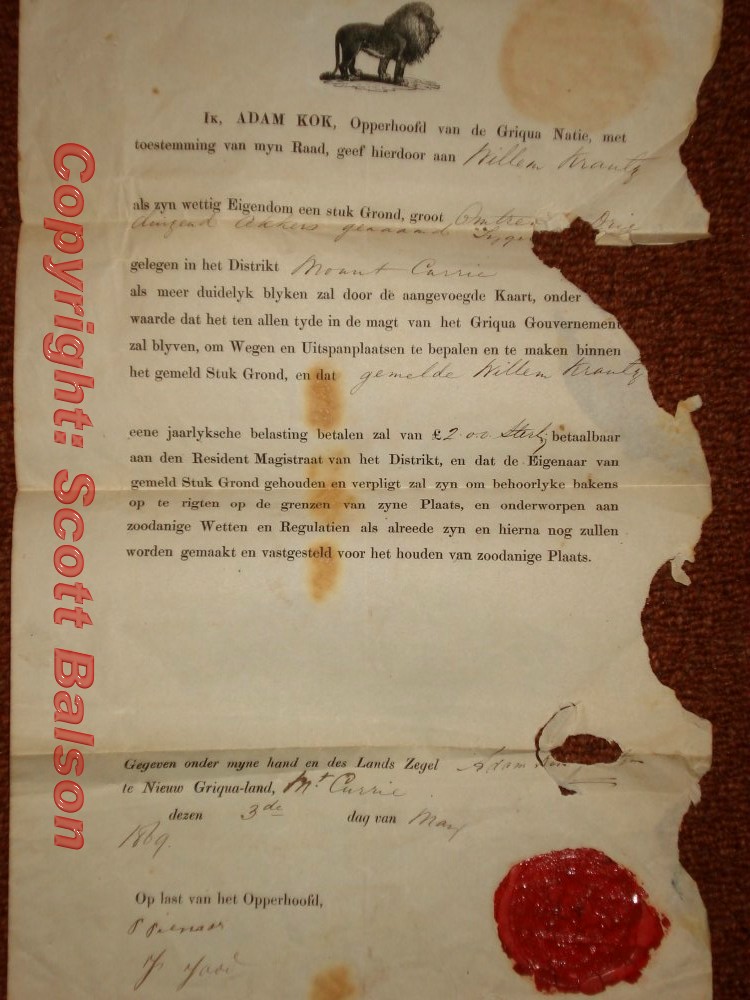 IK, ADAM KOK, Opperhoofd van de Griqua Natie, met
toestemming van myn Raad, geef hierdoor aan Willem Krautz
als zyn wettig Eigendom een stuk Grond, groot Omtrent Drie
duizend Akkers genaamd
gelegen in het Distrikt Mount Currie
als meer duidelyk blyken zal door de aangevoegde Kaart, onder
waarde dat het ten allen tyde in de magt van het Griqua Gouvernement
zal blyven, om Wegen en Uitspanplaatsen te bepalen en te maken binnen
het gemeld Stuk Grond, en dat gemelde Willem Krautz
eene jaarlyksche belasting betalen zal van £2 0.0 Sterlg betaalbaar
aan den Resident Magistraat van het Distrikt, en dat de Eigenaar van
gemeld Stuk Grond gehouden en verpligt zal zyn om behoorlyke bakens
op te rigten op de grenzen van zyne Plaats, en onderworpen aan
zoodanige Wetten en Regulatien als alreede zyn en hierna nog zullen
worden gemaakt en vastgesteld voor het houden van zoodanige Plaats.
Gegeven onder myne hand en des Lands Zegel Adam
te Nieuw Griqua-land, Mt Currie
dezen 3de dag van May
1869.
Op last van het Opperhoofd,
P Pienaar
Copyright: Scott Balson